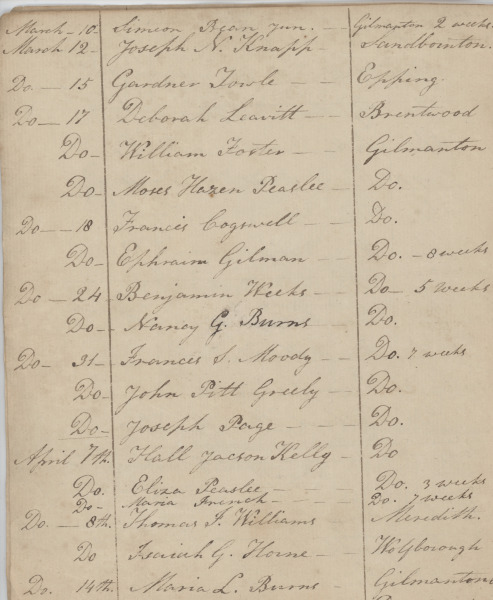 March - 10 - Simeon Bean jun. - - Gilmanton 2 weeks
March 12 - Joseph N. Knapp - - Sandbornton.
Do. - 15 Gardner Towle - - Epping.
Do - 17 Deborah Leavitt - - Brentwood
Do - William Foster - - Gilmanton
Do - Moses Hazen Peaslee - Do.
Do - - 18 Francis Cogswell - - Do.
Do - Ephraim Gilman - - Do. - 8 weeks
Do - 24 - Benjamin Weeks - - Do - 5 weeks
Do - Nancy G. Burns - - Do.
Do - 31 - Frances S. Moody - - Do. 7 weeks
Do - John Pitt Greely - - Do.
Do - Joseph Page - - Do.
April 7th. Hall Jacson Kelly - Do
Do. Eliza Peaslee - - Do. 3 weeks
Do - Maria French - - Do. 7 weeks
Do. - 8th. Thomas J. Williams Meredith.
Do Isaiah G. Horne - Wolfborough
Do. 14th. Maria L. Burns - Gilmanton